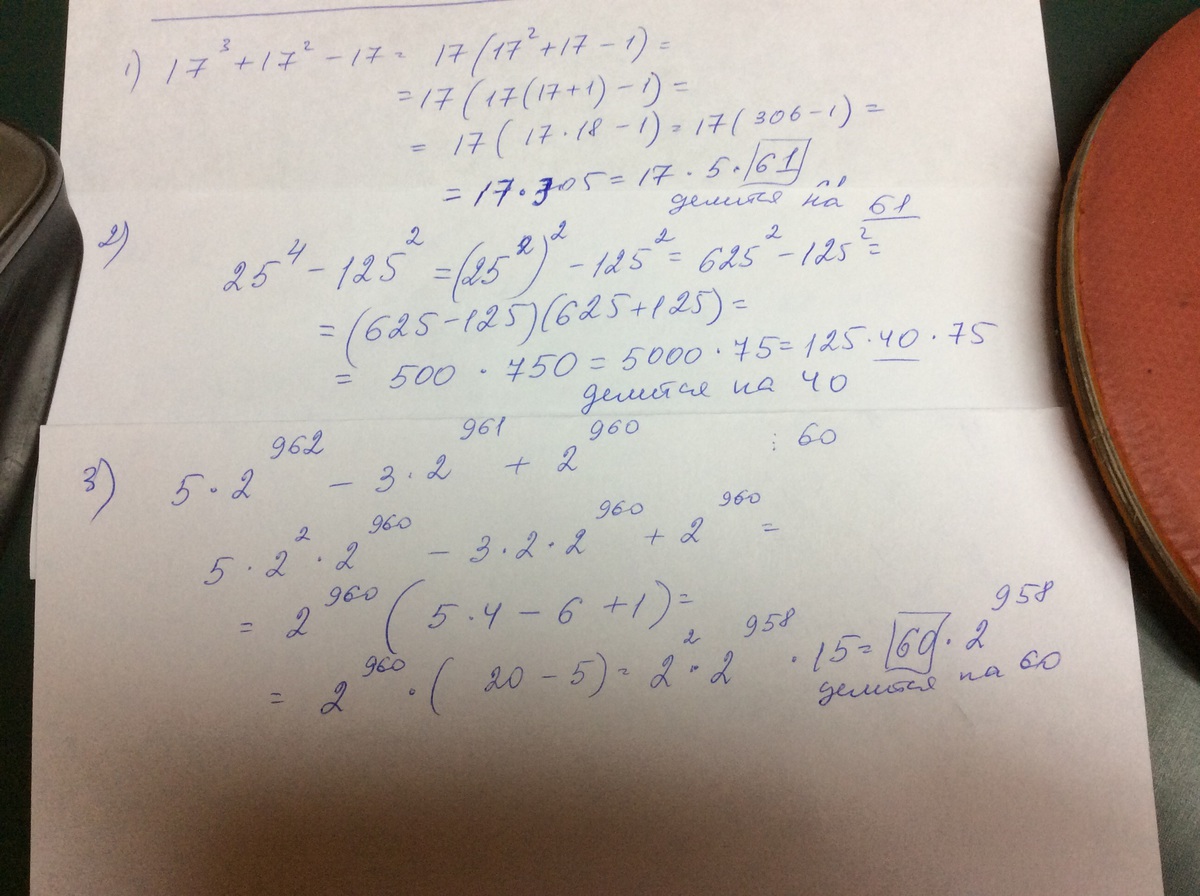 1) 17³ + 17² - 17 = 17(17² + 17 - 1) =
= 17(17(17+1) - 1) =
= 17(17·18 - 1) = 17(306 - 1) =
= 17·305 = 17·5·61
делится на 61
2) 25⁴ - 125² = (25²)² - 125² = 625² - 125² =
= (625 - 125)(625 + 125) =
= 500 · 750 = 5000 · 75 = 125·40·75
делится на 40
3) 5·2⁹⁶² - 3·2⁹⁶¹ + 2⁹⁶⁰ ⋮ 60
5·2²·2⁹⁶⁰ - 3·2·2⁹⁶⁰ + 2⁹⁶⁰ =
= 2⁹⁶⁰(5·4 - 6 + 1) =
= 2⁹⁶⁰·(20 - 5) = 2²·2⁹⁵⁸·15 = 60·2⁹⁵⁸
делится на 60